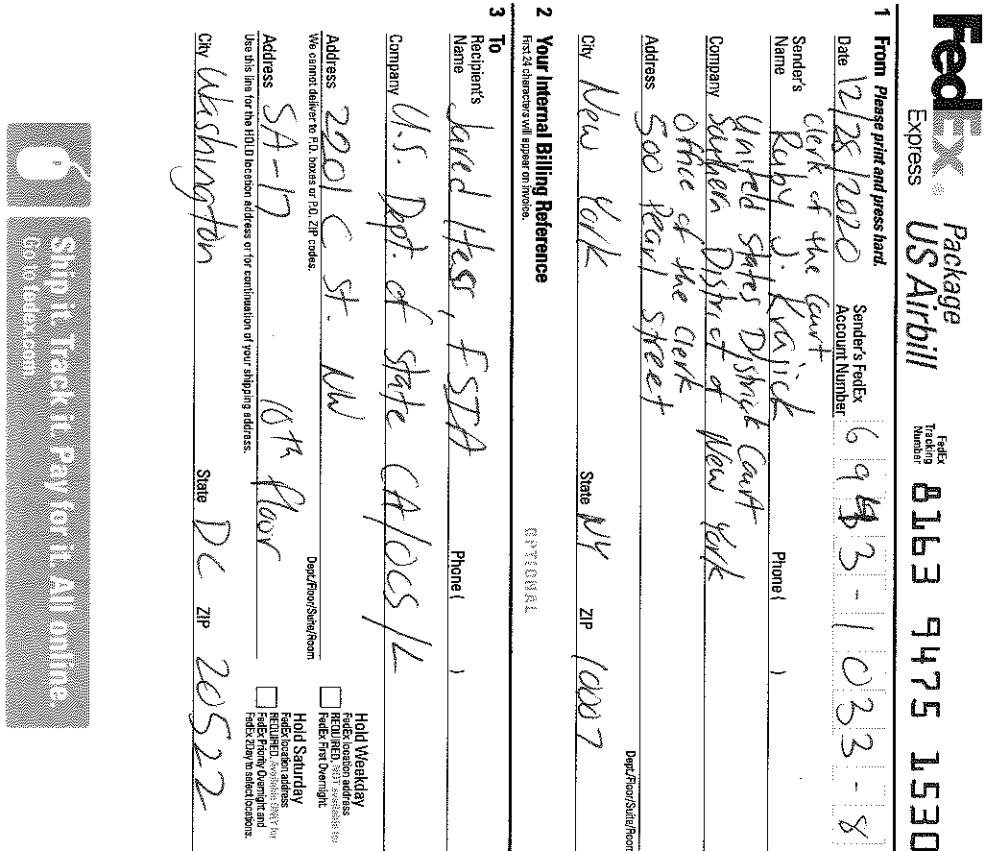 FedEx® Package
Express US Airbill
FedEx Tracking Number 8163 9475 1530
1 From Please print and press hard.
Date 12/28/2020 Sender's FedEx Account Number 3 - 1033 - 8
Clerk of the Court
Sender's Name Ruby J. Krajick Phone ( )
United States District Court
Company Southern District of New York
Office of the Clerk
Address 500 Pearl Street
Dept./Floor/Suite/Room
City New York State NY ZIP 10007
2 Your Internal Billing Reference
First 24 characters will appear on invoice. OPTIONAL
3 To
Recipient's Name Jared Hess, FSIA Phone ( )
Company U.S. Dpt. of State CA/OCS/L
Address 2201 C St. NW
We cannot deliver to P.O. boxes or P.O. ZIP codes. Dept./Floor/Suite/Room
Address SA-17 10th Floor
Use this line for the HOLD location address or for continuation of your shipping address.
City Washington State DC ZIP 20522
Hold Weekday
FedEx location address
REQUIRED. NOT available for
FedEx First Overnight.
Hold Saturday
FedEx location address
REQUIRED. Available ONLY for
FedEx Priority Overnight and
FedEx 2Day to select locations.
6 Ship it. Track it. Pay for it. All online.
Go to fedex.com.